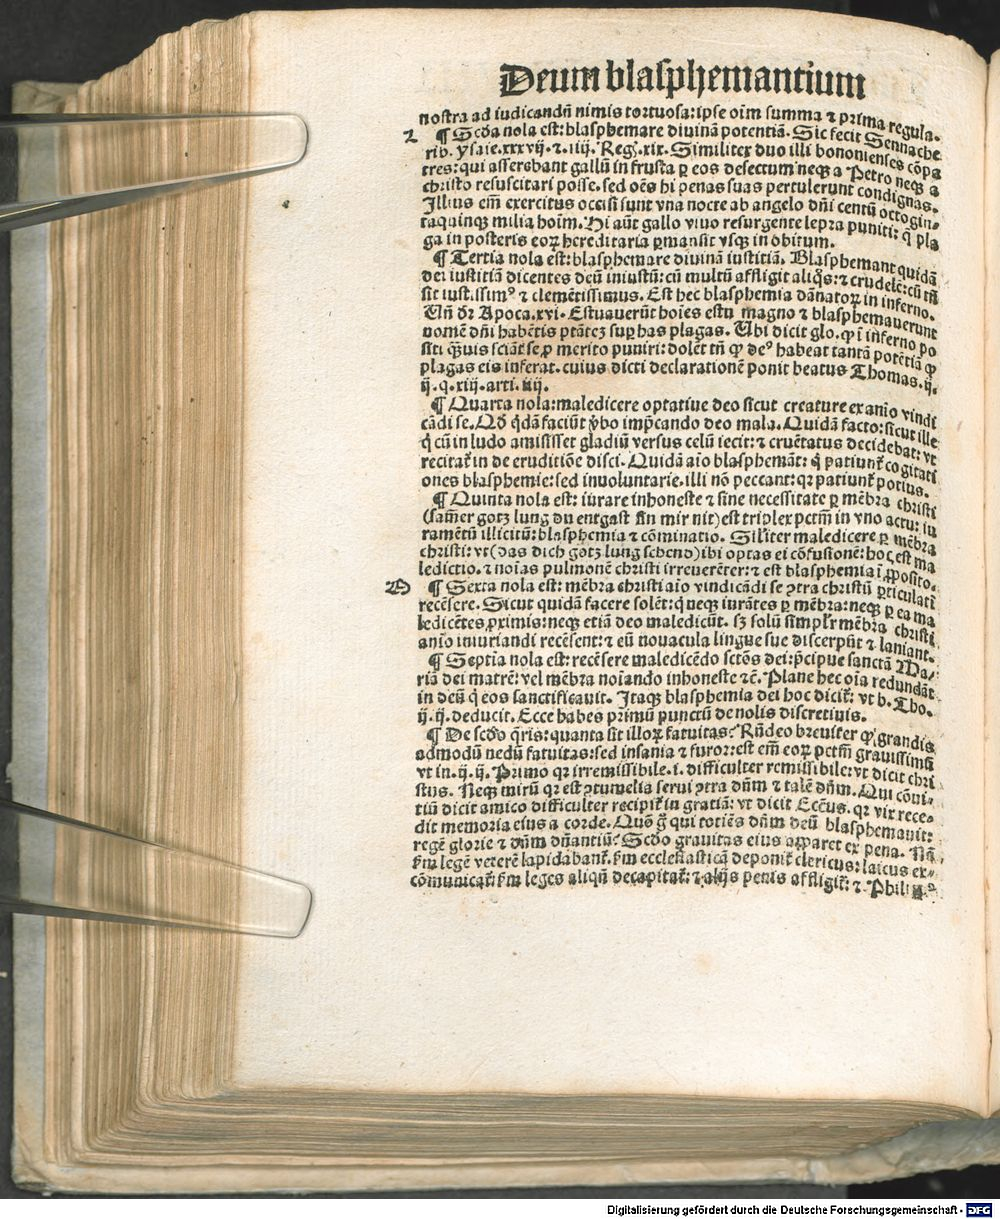 Deum blasphemantium
nostra ad iudicandũ nimis tortuosa: ipse oĩm summa ⁊ prima regula.
2 ¶ Scďa nola est: blasphemare diuinã potentiã. Sic fecit Sennache
rib. ysaie.xxxvij.⁊.iiij. Reg.xix. Similiter duo illi bononienses cõpa
tres: qui asserebant gallũ in frusta ꝑ eos desectum neqꝫ a Petro neqꝫ a
christo resuscitari posse. sed oẽs hi penas suas pertulerunt condignas.
Illius em̃ exercitus occisi sunt vna nocte ab angelo dñi centũ octogin-
taquinqꝫ milia hoĩm. Hi aũt gallo viuo resurgente lepra puniti: q̃ pla
ga in posteris eoꝝ hereditaria ꝑmansit vsqꝫ in obitum.
¶ Tertia nola est: blasphemare diuinã iustitiã. Blasphemant quidã
dei iustitiã dicentes deũ iniustũ: cũ multũ affligit aliq̃s: ⁊ crudelẽ: cũ tñ
sit iustissimꝰ ⁊ clemẽtissimus. Est hec blasphemia dãnatoꝝ in inferno.
Uñ dr̃ Apoca.xvi. Estuauerũt hoĩes estu magno ⁊ blasphemauerunt
nomẽ dñi habẽtis ptãtẽ sup has plagas. Ubi dicit glo. ꝙ ĩ inferno po
siti q̃uis sciãt se ꝓ merito puniri: dolẽt tñ ꝙ deꝰ habeat tantã potẽtiã ꝙ
plagas eis inferat. cuius dicti declarationẽ ponit beatus Thomas.ij.
ij.q.xiij.arti.iiij.
¶ Quarta nola: maledicere optatiue deo sicut creature ex anĩo vindi
cãdi se. Qď q̃dã faciũt v̾bo imp̃cando deo mala. Quidã facto: sicut ille
q̃ cũ in ludo amisisset gladiũ versus celũ iecit: ⁊ cruẽtatus decidebat: vt
recitat̃ in de eruditiõe disci. Quidã aĩo blasphemãt: q̃ patiunt̃ cogitati
ones blasphemie: sed inuoluntarie. illi nõ peccant: qꝛ patiunt̃ potius.
¶ Quinta nola est: iurare inhoneste ⁊ sine necessitate ꝑ mẽbra christi
(sam̃er gotz lung du entgast ſin mir nit) est triplex pctm̃ in vno actu: iu
ramẽtũ illicitũ: blasphemia ⁊ cõminatio. Silr̃iter maledicere ꝑ mẽbra
christi: vt (das dich gotz lung schend) ibi optas ei cõfusionẽ: hoc est ma
ledictio. ⁊ noĩas pulmonẽ christi irreuerẽter: ⁊ est blasphemia ĩ ꝓposito.
¶ Sexta nola est: mẽbra christi aĩo vindicãdi se ꝯtra christũ ꝑticulatĩ
recẽsere. Sicut quidã facere solẽt: q̃ neqꝫ iurãtes ꝑ mẽbra: neqꝫ ꝑ ea ma
ledicẽtes ꝓximis: neqꝫ etiã deo maledicũt. sꝫ solũ simplr̃ mẽbra christi
anĩo iniuriandi recẽsent: ⁊ eũ nouacula lingue sue discerpũt ⁊ laniant.
¶ Septĩa nola est: recẽsere maledicẽdo sctõs dei: p̃cipue sanctã Ma-
riã dei matrẽ: vel mẽbra noĩando inhoneste ⁊c̃. Plane hec oĩa redundãt
in deũ q̃ eos sanctificauit. Itaqꝫ blasphemia dei hoc dicit̃: vt b. Tho.
ij.ij. deducit. Ecce habes primũ punctũ de nolis discretiuis.
¶ De scďo q̃ris: quanta sit illoꝝ fatuitas? Rñdeo breuiter ꝙ grandis
admodũ nedũ fatuitas: sed insania ⁊ furor: est em̃ eoꝝ pctm̃ grauissimũ
vt in.ij.ij. Primo qꝛ irremissibile.i. difficulter remissibile: vt dicit chri
stus. Neqꝫ mirũ qꝛ est ꝯtumelia serui ꝯtra dñm ⁊ talẽ dñm. Qui cõui-
tiũ dicit amico difficulter recipit̃ in gratiã: vt dicit Ecc̃us. qꝛ vix rece-
dit memoria eius a corde. Quõ g̃ qui totiẽs dñm deũ blasphemauit:
regẽ glorie ⁊ dñm dñantiũ? Scďo grauitas eius apparet ex pena. Nã
ẜm legẽ veterẽ lapidabant̃. ẜm ecclesiasticã deponit̃ clericus: laicus ex-
cõmunicat̃: ẜm leges aliqñ decapitat̃: ⁊ alijs penis affligit̃: ⁊ Philippꝰ
Digitalisierung gefördert durch die Deutsche Forschungsgemeinschaft - DFG